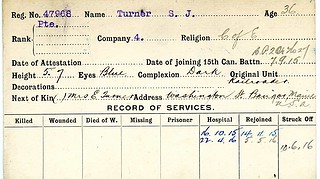 Reg. No. 47968 Name Turner S. J. Age 36
Rank Pte. Company 4. Religion C of E
Date of Attestation Date of joining 15th Can. Battn. 7.9.15
Height 5.7 Eyes Blue Complexion Dark Original Unit
Decorations Railroader
Next of Kin Mrs E Turner Address Washington St. Bangor Maine
U.S.A
RECORD OF SERVICES.
Killed Wounded Died of W. Missing Prisoner Hospital Rejoined Struck Off
16.10.15 14.11.15
22.4.16 5.5.16 10.6.16